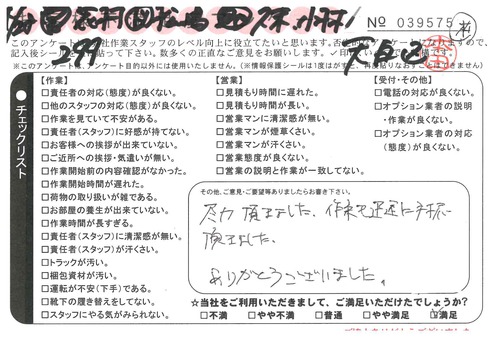 No 039575
このアンケートは
社作業スタッフのレベル向上に役立てたいと思います。
数多くの正直なご意見をお願い致します。
※このアンケートは、アンケート目的以外には使用いたしません。(※情報保護シールは1度はがすと、再度貼りなおすことはできません)
299
チェックリスト
【作業】
□責任者の対応(態度)が良くない。
□他のスタッフの対応(態度)が良くない。
□作業を見ていて不安がある。
□責任者(スタッフ)に好感が持てない。
□お客様への挨拶が出来ていない。
□ご近所への挨拶・気遣いが無い。
□作業開始前の内容確認がなかった。
□作業開始時間が遅れた。
□荷物の取り扱いが雑である。
□お部屋の養生が出来ていない。
□作業時間が長すぎる。
□責任者(スタッフ)に清潔感が無い。
□責任者(スタッフ)が汗くさい。
□トラックが汚い。
□梱包資材が汚い。
□運転が不安(下手)である。
□靴下の履き替えをしてない。
□スタッフにやる気がみられない。
【営業】
□見積もり時間に遅れた。
□見積もり時間が長い。
□営業マンに清潔感が無い。
□営業マンが煙草くさい。
□営業マンが汗くさい。
□営業態度が良くない。
□営業の説明と作業が一致してない。
【受付・その他】
□電話の対応が良くない。
□オプション業者の説明
・作業が良くない。
□オプション業者の対応
(態度)が良くない。
その他、ご意見・ご要望等ありましたらお書き下さい。
尽力頂きました、作業も迅速に
頂きました。
ありがとうございました。
☆当社をご利用いただきまして、ご満足いただけたでしょうか?
□不満 □やや不満 □普通 □やや満足 ☑満足